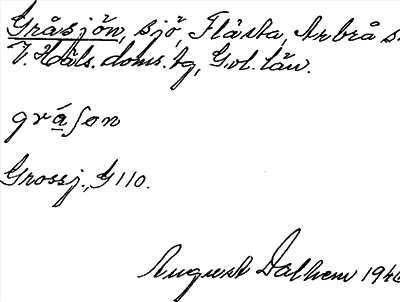 Gråsjön, sjö, Flästa, Arbrå s.
V. Häls. doms. tg, Gvl. län.
gråſon
Grossj., G 110.
August Dalhem 1946